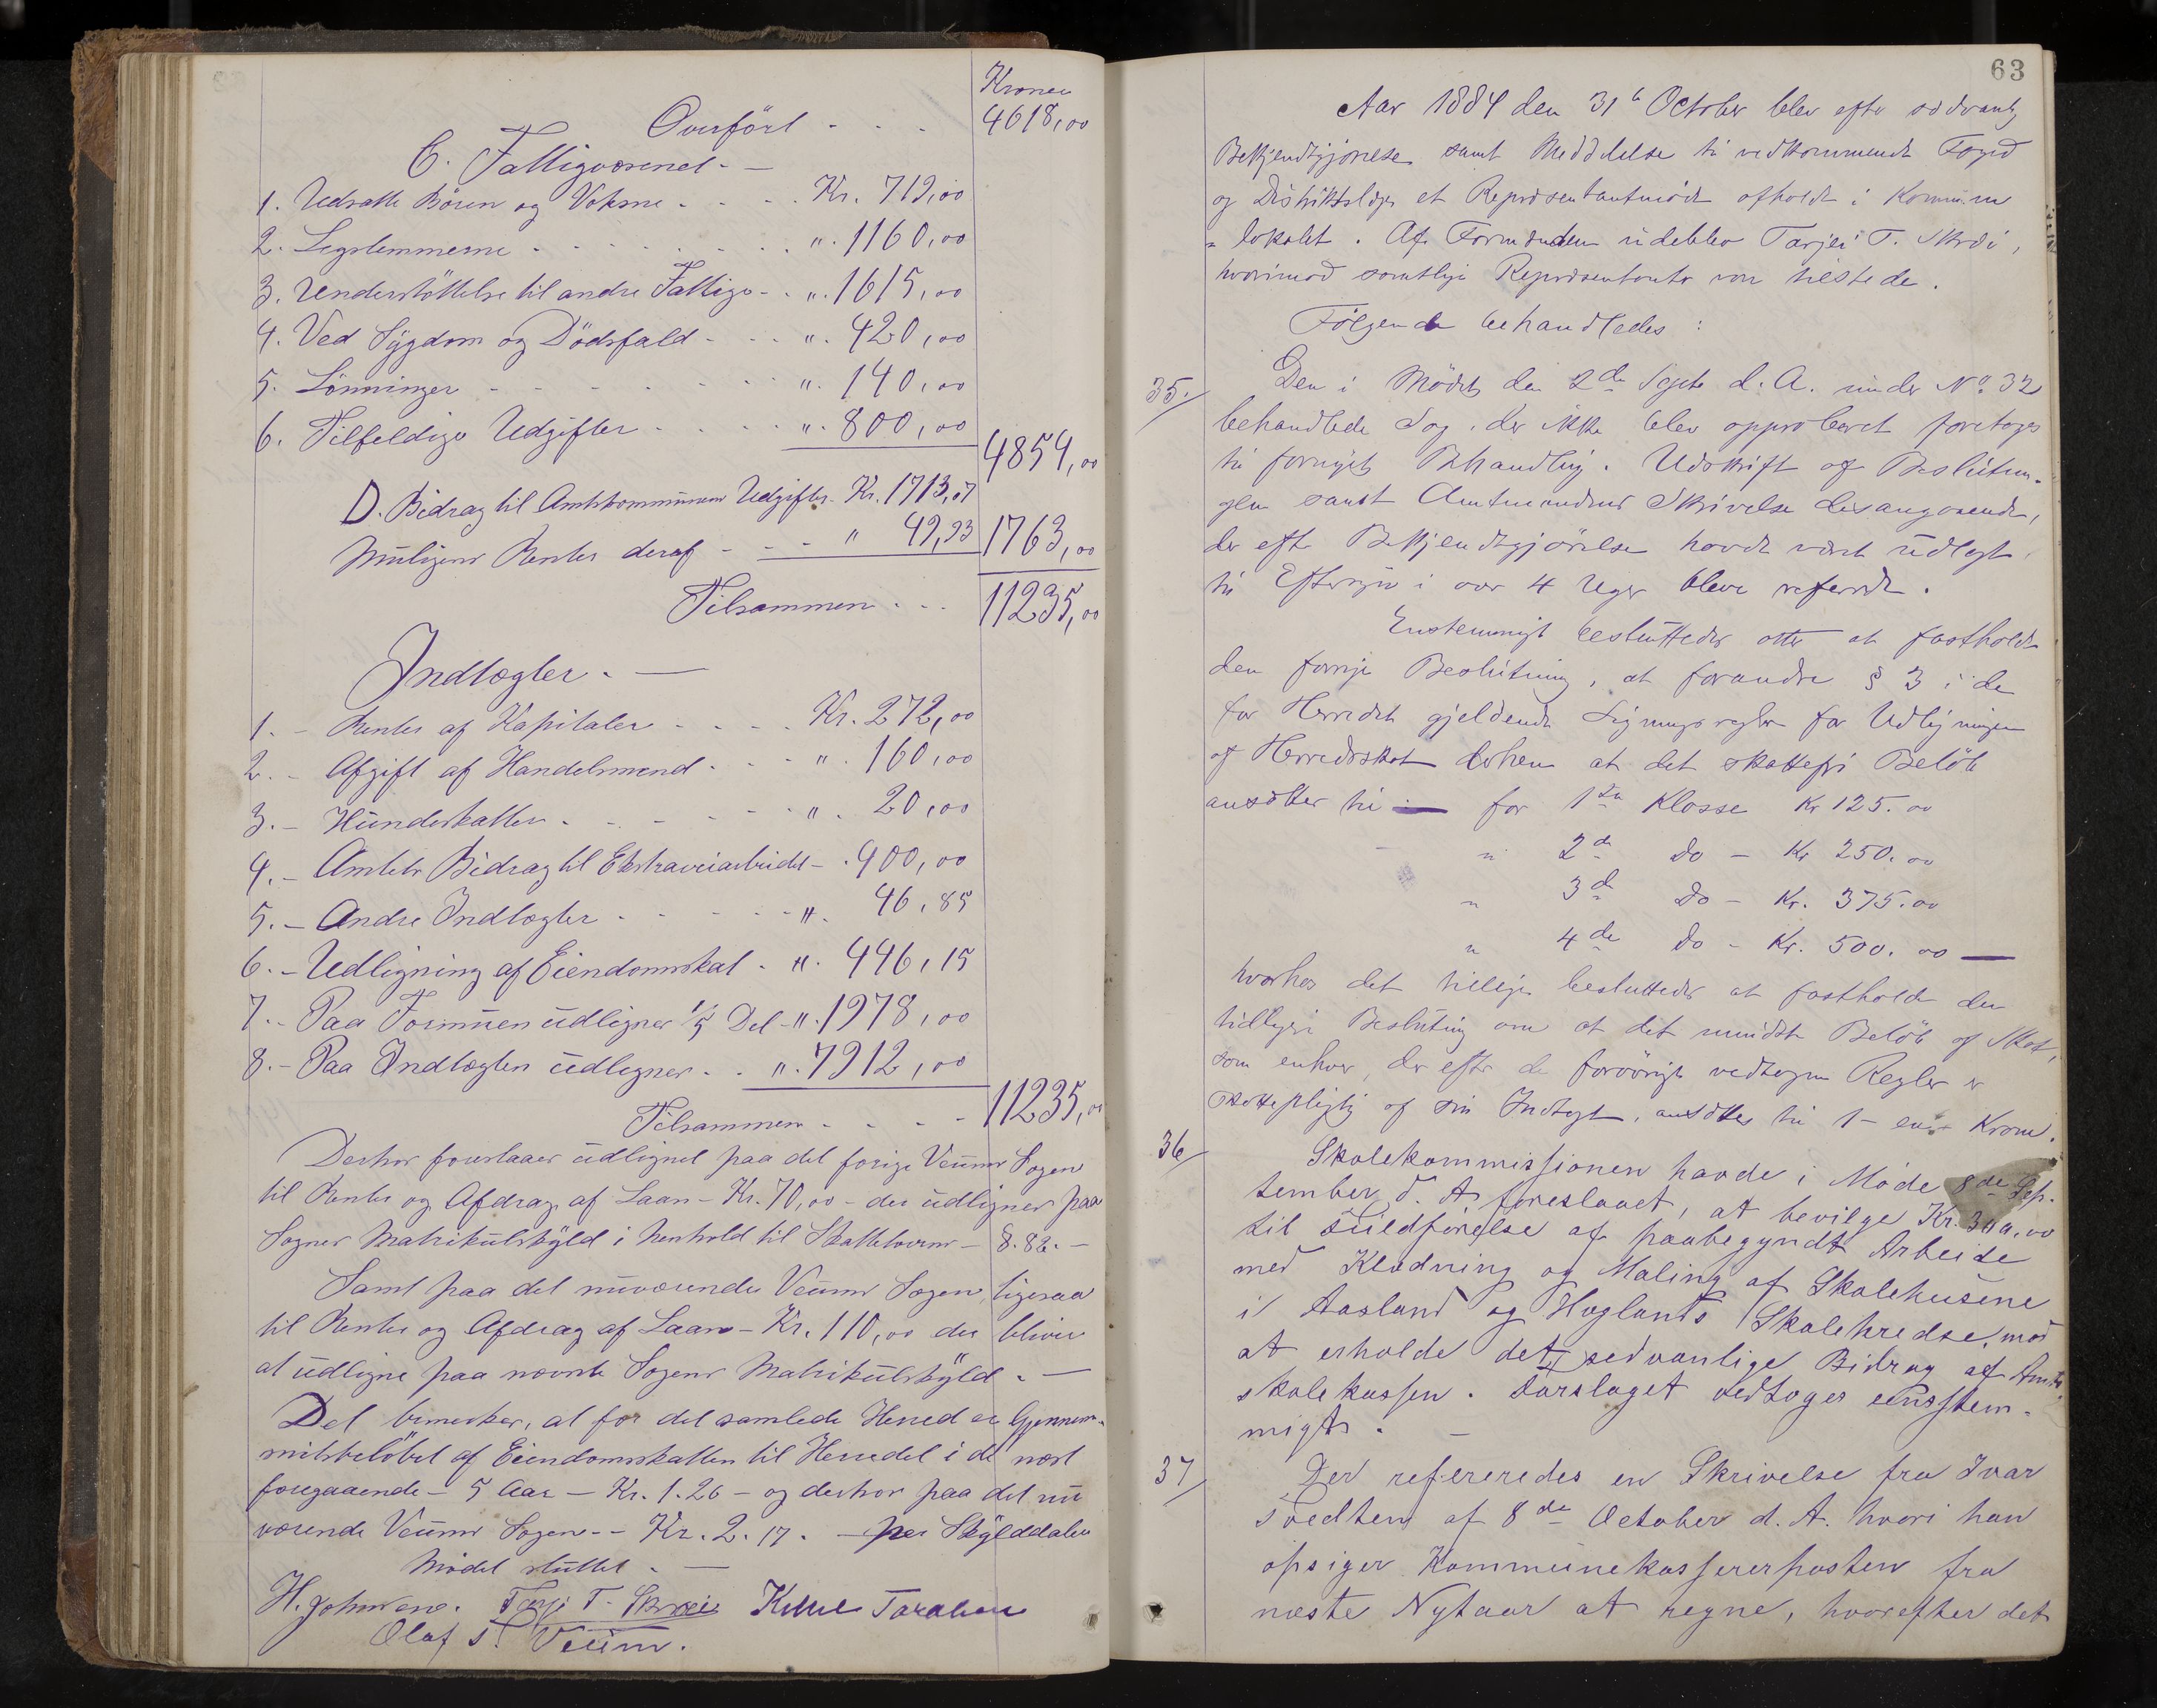 Kroner
Overført - - - 4618,00
C. Fattigvæsenet. —
1. Udsatte Børn og Voksne - - - - Kr. 719,00
2. Lægslemmerne - - - - - - - - ". 1160,00
3. Understøttelse til andre Fattige - - ". 1615,00
4. Ved Sygdom og Dødsfald - - - ". 420,00
5. Lønninger - - - - - - - - ". 140,00
6. Tilfeldige Udgifter - - - - ". 800,00
4854,00
D. Bidrag til Amtskommunens Udgifter - Kr. 1713,07
Muligens Renter deraf - - - " 49,93 1763,00
Tilsammen - - - 11235,00
Indtægter. —
1. - Renter af Kapitaler - - - - Kr. 272,00
2. - Afgift af Handelsmend - - - ". 160,00
3. - Hundeskatten - - - - - - ". 20,00
4. - Amtets Bidrag til Ekstraveiarbeidet - . 400,00
5. - Andre Indtægter - - - - - ". 46,85
6. - Udligning af Eiendomsskat - ". 446,15
7. - Paa Formuen udlignes 1/5 Del - ". 1978,00
8. - Paa Indtægten udlignes - - ". 7912,00
Tilsammen - - - - 11235,00
Derhos foreslaaes udlignet paa det forige Veums Sogen
til Renter og Afdrag af Laan - Kr. 70,00 - der udlignes paa
Sognes Matrikulskyld i henhold til Skatteloven - 8.82. -
Samt paa det nuværende Veums Sogen ligesaa
til Renter og Afdrag af Laan - Kr. 110,00 der bliver
at udligne paa nævnte Sogens Matrikulskyld. —
Det bemerkes, at for det samlede Herred er Gjennem-
snitsbeløbet af Eiendomsskatten til Herredet i de næst
foregaaende - 5 Aar - Kr. 1.26 - og derhos paa det nu
værende Veums Sogen - - Kr. 2.17. - per Skylddaler
Mødet sluttet. —
H. Johnsen. Tarje T. Skræi Kittil Taraldsen
Olaf S. Veum.
63
Aar 1884 den 31te October blev efter sædvanlig
Bekjendtgjørelse samt Meddelelse til vedkommende Foged
og Distriktslæge et Repræsentantmøde afholdt i Kommune
= lokalet. Af Formænden udeblev Tarjei T. Skræi,
hvorimod samtlige Repræsentanter var tilstede.
Følgende behandledes:
35./ Den i Mødet den 2de Septe d. A. under No. 32
behandlede Sag, der ikke blev approberet foretoges
til fornyet Behandling. Udskrift af Beslutnin-
gen samt Amtmandens Skrivelse desangaaende,
der efter Bekjendtgjørelse havde været udlagt
til Eftersyn i over 4 Uger bleve refererede.
Enstemmigt besluttedes atter at fastholde
den forrige Beslutning, at forandre § 3 i de
for Herredet gjeldende Ligningsregler for Udligningen
af Herredsskat derhen at det skattefri Beløb
ansættes til — for 1ste Klasse Kr 125.00
" 2de Do - Kr 250.00
" 3de Do - Kr. 375.00
" 4de Do - Kr. 500.00 —
hvorhos det tillige besluttedes at fastholde den
tidligere Beslutning om at det mindste Beløb af Skat,
som enhver, der efter de forøvrigt vedtagne Regler er
skattepligtig af sin Indtægt, ansættes til 1 - en - Krone.
36/ Skolekommissionen havde i Møde 8de Sep-
tember d. A. foreslaaet, at bevilge Kr. 300,00
til Fuldførelse af paabegyndt Arbeide
med Klædning og Maling af Skolehusene
i Aasland og Høglands Skolekredse, mod
at erholde det sedvanlige Bidrag af Amts-
skolekassen. Forslaget vedtoges eensstem-
migt. —
37/ Der refereredes en Skrivelse fra Ivar
Tvedten af 8de October d. A. hvori han
opsiger Kommunekassererposten fra
næste Nytaar at regne, hvorefter det